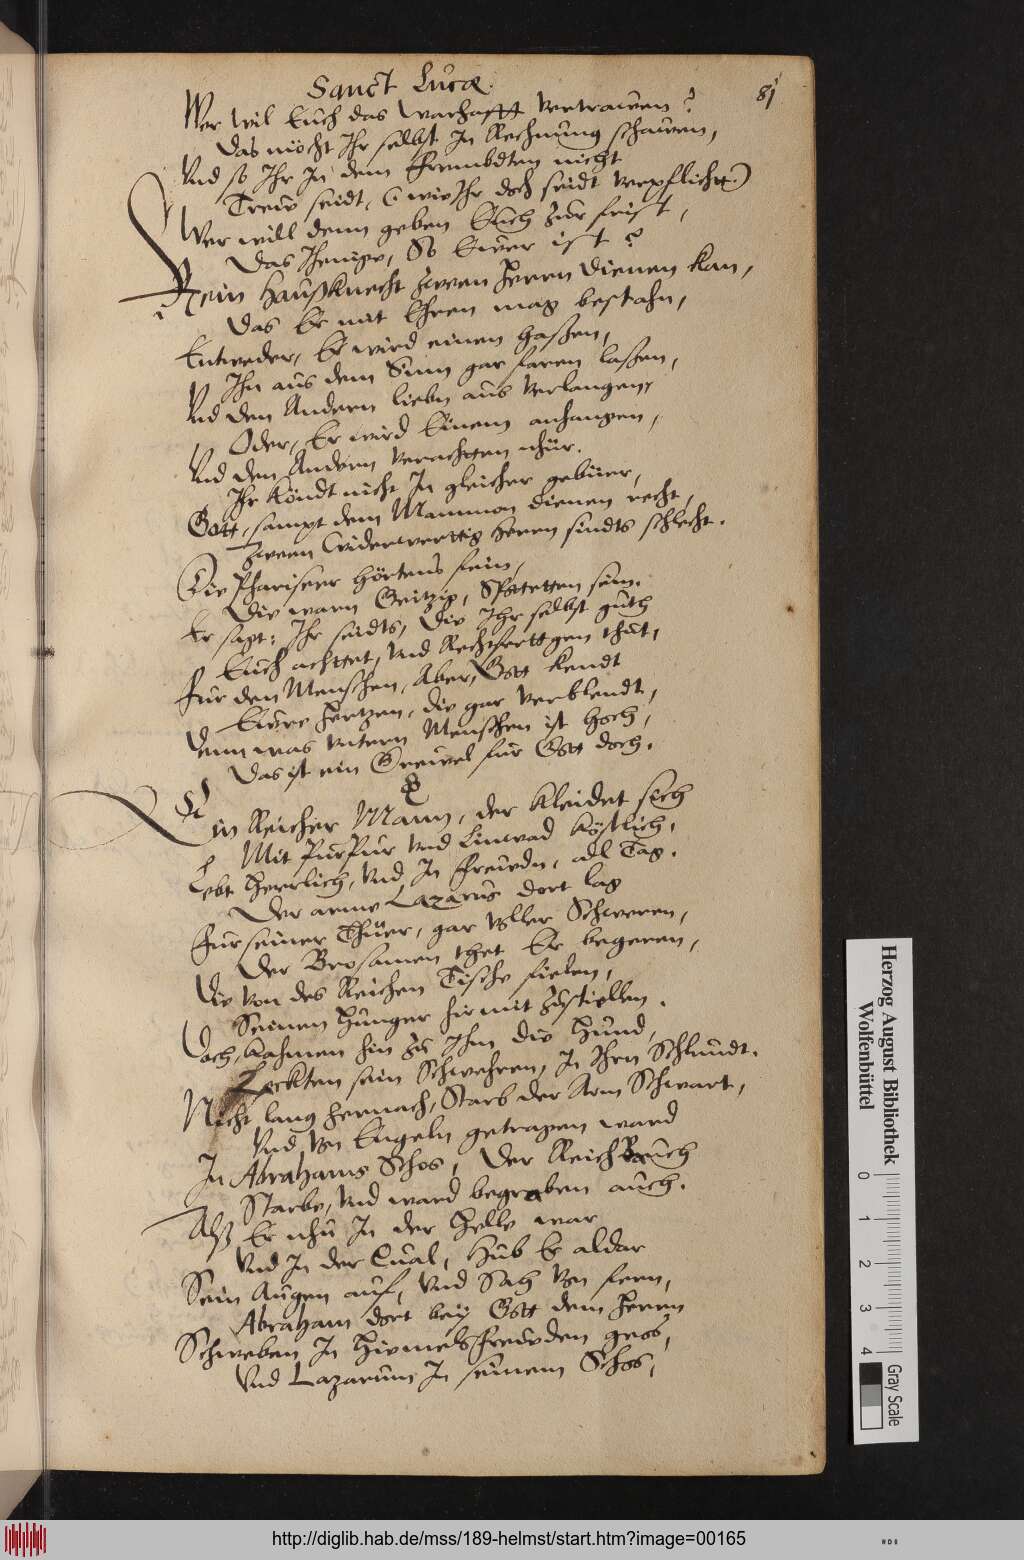 Sanct Lucæ.
81
Wer wil Euch das warhafft vertrawen?
Das möcht Ihr selbst In Rechnung schawen,
Vnd so Ihr In dem frembdten nicht
Trew seidt, (wie Ihr doch seidt verpflicht)
Wer will denn geben Euch zur frist,
Das Jhenige, So Ewer ist?
Kein Haußknecht zween Herrn dienen kan,
Das Er mit Ehren mag bestahn,
Entweder, Er wird einen haßen,
Ihn aus dem Sinn gar faren laßen,
Vnd den Andern liebn aus verlangen,
Oder, Er wird Einem anhangen,
Vnd den Andern verachten nhur.
Ihr köndt nicht In gleicher gebüer,
Gott, sampt dem Mammon dienen recht,
Zween Widerwertig Herrn sindts schlecht.
Die Phariseer hörtens fein,
Die warn Geitzig, Spotteten sein.
Er sagt: Ihr seidts, die Ihr selbst guth
Euch achttet, vnd Rechtferttgen thut,
Für den Menschen, Aber, Gott kendt
Ewre Hertzen, die gar verblendt,
Denn was vntern Menschen ist hoch,
Das ist ein Grewel für Gott doch.
Ein Reicher Mann, der kleidet sich
Mit PurPur vnd Linwad köstlich,
Lebt Herrlich, vnd In freudn, all Tag.
Der arme Lazarus dort lag
Für seiner Thüer, gar voller Schweren,
Der Brosamen thet Er begeren,
Die von des Reichen Tische fielen,
Seinen Hunger hirmit zustillen.
Doch, kahmen hin zu Ihm die Hund,
Leckten sein Schwehren, In Ihrn Schlundt.
Nicht lang hernach, Starb der Arm Schwart,
Vnd von Engeln getragen ward
In Abrahams Schos, der Reich Bauch
Starbe, vnd ward begraben auch.
Alß Er nhu In der Helle war
Vnd In der Qual, Hub Er aldar
Sein Augen auf, vnd Sah von fern,
Abraham dort bey Gott dem Herrn
Schweben In Himelsfreuden gros,
Vnd Lazarum In seinem Schos,
Herzog August Bibliothek
Wolfenbüttel
0 1 2 3 4
Gray Scale
http://diglib.hab.de/mss/189-helmst/start.htm?image=00165